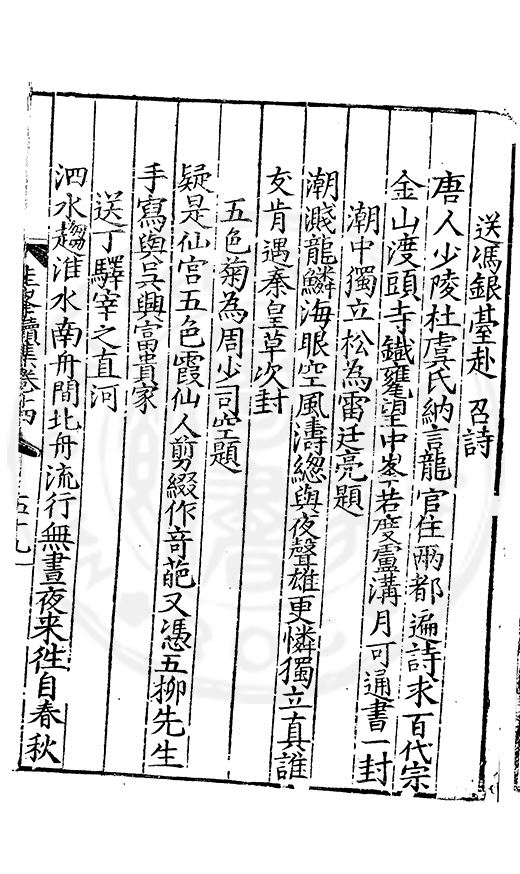 送馮銀臺赴 召詩
唐人少陵杜虞氏納言龍官住兩都遍詩求百代宗
金山渡頭寺鐵甕望中峯若度盧溝月可通書一封
潮中獨立松為雷廷亮題
潮濺龍鱗海眼空風濤緫與夜聲雄更憐獨立真誰
友肯遇秦皇草次封
五色菊為周少司空題
疑是仙宮五色霞仙人剪綴作竒葩又憑五柳先生
手寫與吳興富貴家
送丁驛宰之直河
泗水趨淮水南舟間北舟流行無晝夜来徃自春秋
續集卷十四
五十九